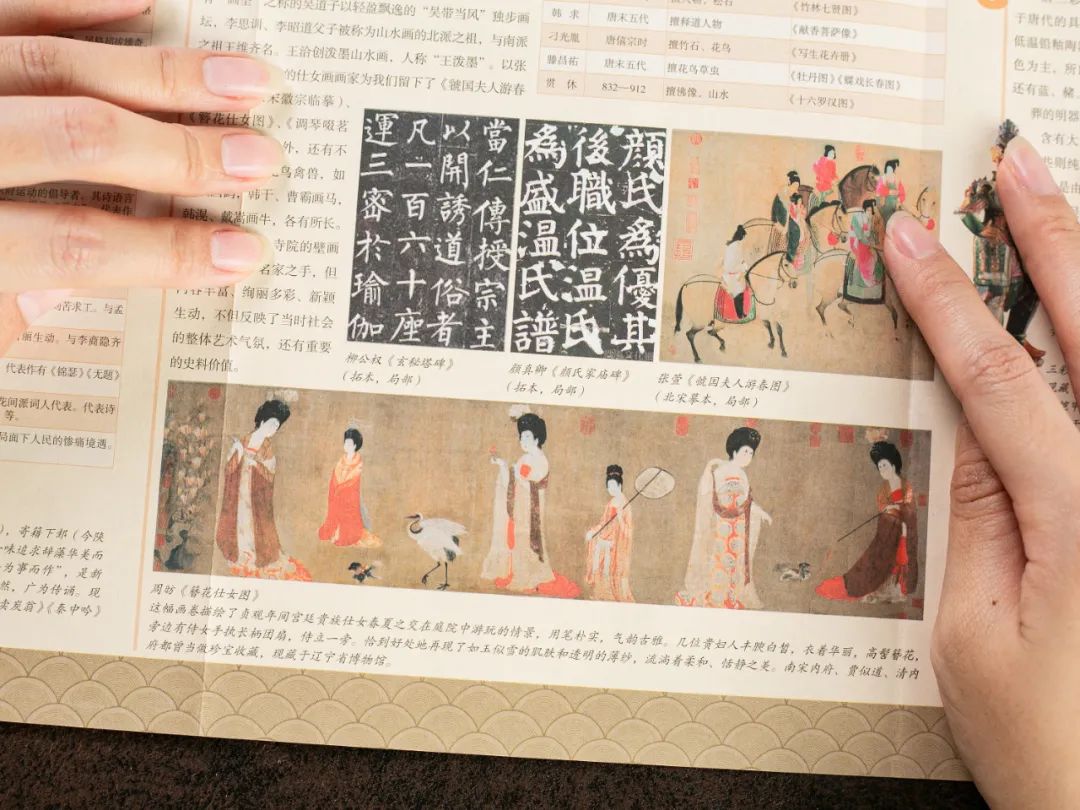 之称的吴道子以轻盈飘逸的“吴带当风”独步画
坛，李思训、李昭道父子被称为山水画的北派之祖，与南派
之祖王维齐名。王洽创泼墨山水画，人称“王泼墨”。以张
的仕女画画家为我们留下了《虢国夫人游春
宋徽宗临摹）、
《簪花仕女图》、《调琴啜茗
外，还有不
鸟禽兽，如
韩干、曹霸画马，
韩滉、戴嵩画牛，各有所长。
寺院的壁画
名家之手，但
内容丰富、绚丽多彩、新颖
生动，不但反映了当时社会
的整体艺术气氛，还有重要
的史料价值。
《竹林七贤图》
韩求 唐末五代 擅释道人物 《献香菩萨像》
刁光胤 唐僖宗时 擅竹石、花鸟 《写生花卉册》
滕昌祐 唐末五代 擅花鸟草虫 《牡丹图》《蝶戏长春图》
贯休 832—912 擅佛像、山水 《十六罗汉图》
當仁傳授宗主
以開誘道俗者
凡一百六十座
運三密於瑜伽
顏氏為優其
後職位温氏
為盛温氏譜
柳公权《玄秘塔碑》
（拓本，局部）
颜真卿《颜氏家庙碑》
（拓本，局部）
张萱《虢国夫人游春图》
（北宋摹本，局部）
周昉《簪花仕女图》
这幅画卷描绘了贞观年间宫廷贵族仕女春夏之交在庭院中游玩的情景，用笔朴实，气韵古雅。几位贵妇人丰腴白皙，衣着华丽，高髻簪花，
旁边有侍女手执长柄团扇，侍立一旁。恰到好处地再现了如玉似雪的肌肤和透明的薄纱，流淌着柔和、恬静之美。南宋内府、贾似道、清内
府都曾当做珍宝收藏，现藏于辽宁省博物馆。
运动的倡导者，其诗语言
苦求工。与孟
丽生动。与李商隐齐
代表作有《锦瑟》《无题》
花间派词人代表。代表诗
等。
局面下人民的惨痛境遇。
，寄籍下邽（今陕
味追求辞藻华美而
为事而作”，是新
然，广为传诵。现
卖炭翁》《秦中吟》
于唐代的具
低温铅釉陶
色为主，所
还有蓝、赭
葬的明器
含有大